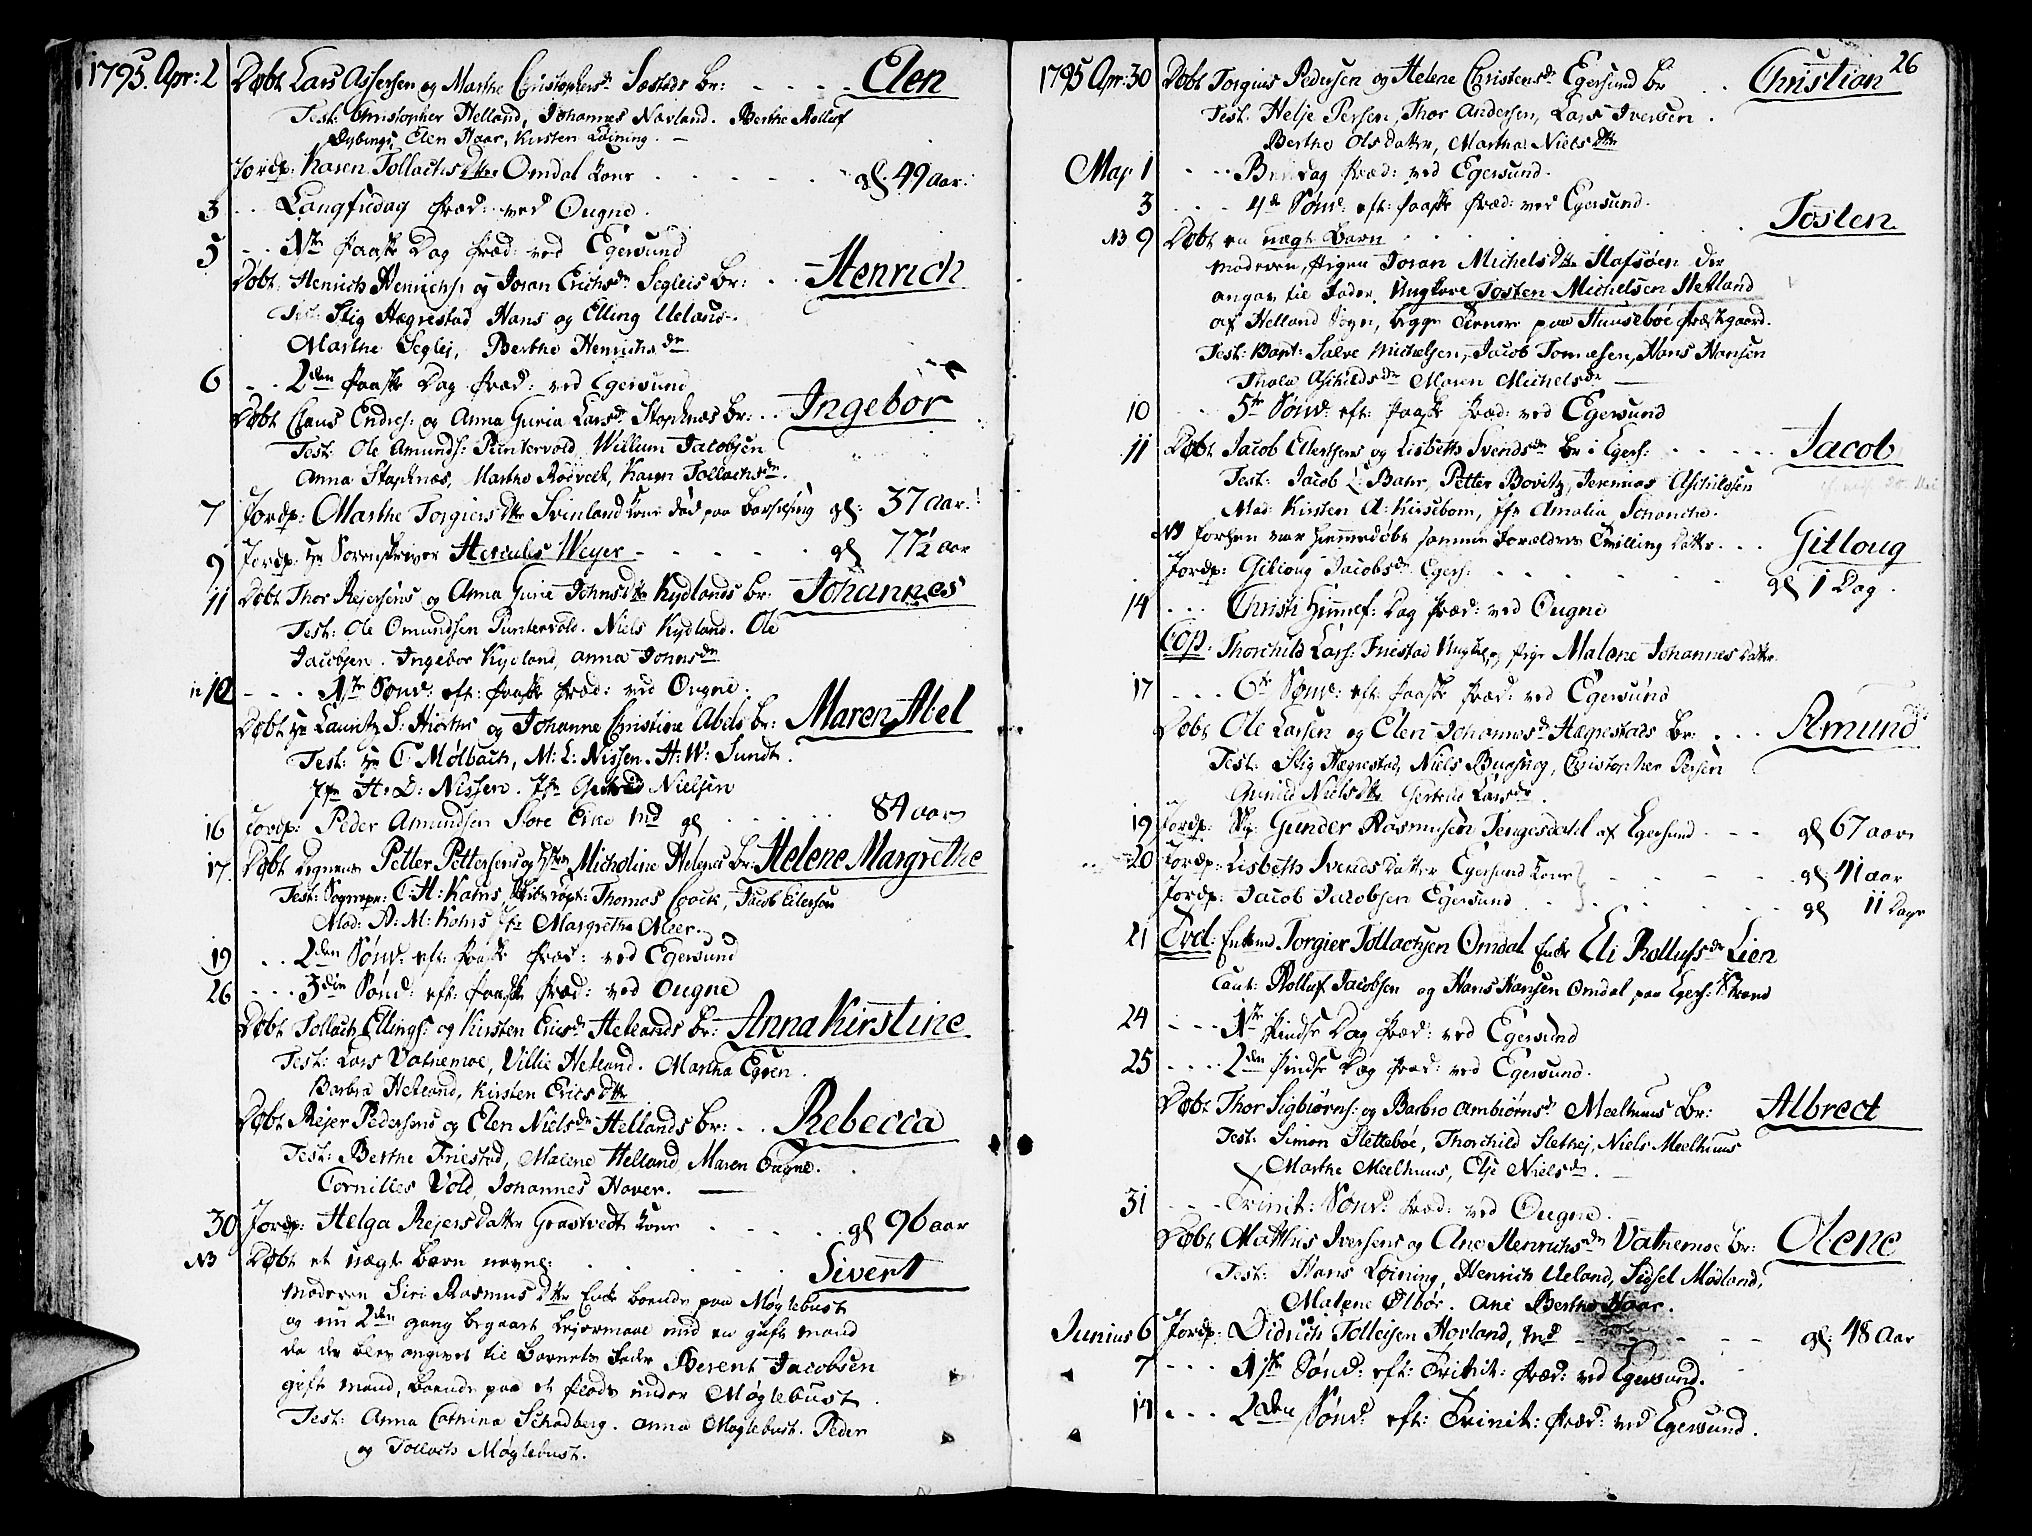 1795. Apr: 2 Døbt Lars Assersen og Marthe Christophersdr Sæstads Br: Elen
Test: Christopher Helland, Johannes Navland. Berthe Rolluf
Elen Haar, Kirsten Løining.
Jordp: Karen Tollachsdttr Omdal Kone gl. 49 aar.
3 Langfredag Præd: ved Ougne.
5 1ste Paaske Dag Præd: ved Egersund
Døbt Henrich Henrichs: og Joran Erichsdr Segleis Br: Henrich
Test: Stig Hægrestad, Hans og Elling Ueland.
Marthe Seglej, Berthe Henrichsdr
6 2den Paaske Dag Præd: ved Egersund
Døbt Claus Endres: og Anna Guria Larsdr Stapnæs Br: Ingebor
Test: Ole Amunds: Puntervold, Willum Jacobsen
Anna Stapnæs, Marthe Rødvelt, Karen Tollachsdr.
7 Jordp: Marthe Torgiersdttr Svinland Kone død paa Barselseng gl: 37 aar
9 Jordp: Hr Sorenskriver Herculs Weyer gl 77½ aar
11 Døbt Thor Rejersens og Anna Gurie Johnsdttr Kydlands Br: Johannes
Test: Ole Omundsen Puntervold. Niels Kydland. Ole
Jacobsen. Ingebor Kydland, Anna Johnsdr
12 1ste Sønd: eft: Paaske Præd: ved Ougne.
Døbt Hr Lauritz S: Hiorths og Johanne Christine Abels Br: Maren Abel
Test: Hr C Mølbach, M: L: Nissen. H: W: Sundt.
Jfr H: D: Nissen. Jfr Nielsen
16 Jordp: Peder Amundsen Store Eike Md gl 84 aar
17. Døbt Degnens Petter Pettersens og Michaline Helgers Br: Helene Margrethe
Test: Sogrepr: C: H: Kahrs, Thomas Coock, Jacob Eilersen
Mad: A: M: Kahrs Jfr Margretha Meer.
19 2den Sønd: eft: Paaske Præd: ved Egersund
26 3die Sønd: eft: Paaske Præd: ved Ougne
Døbt Tollach Ellings: og Kirsten Ericsdr Hetlands Br: Anna Kirstine
Test: Lars Vatnemoe, Villie Hetland. Martha Egeen.
Barbra Hetland, Kirsten Ericsdttr
Døbt Rejer Pedersens og Elen Nielsdr Hellands Br: Rebecca
Test: Berthe Friestad, Malene Helland, Maren Ougne.
Cornilles Vold, Johannes Hover.
30 Jordp: Helga Rejersdatter Grastvedt Kone gl 96 aar
NB Døbt et uægte Barn navnl: Sivert
Moderen Siri Rasmusdttr Enke boende paa Møglebust
og nu 2den gang begaaet Lejermaal med en gift mand
da der blev angivet til Barnets Fader Berent Jacobsen
gift mand, boende paa et Plads under Møglebust.
Test: Anna Cathrina Schadberg. Anna Møglebust. Peder
og Tollach Møglebust.
26
1795 Apr: 30 Døbt Torgius Pedersen og Helene Christensdr Egersund Br Christian
Test: Helje Persen, Thor Andersen, Lars Iversen.
Berthe Olsdatter, Martha Nielsdttr
Maj 1 Bededag Præd: ved Egersund.
3 4de Sønd: eft: Paaske Præd: ved Egersund.
NB 9 Døbt en uægt Barn Tosten
Moderen, Pigen Joran Michelsdttr Hafsøen der
angav til Fader, Ungkarl Tosten Michelsen Hetland
af Helland Sogn, begge tienere paa Huusebøe Præstgaard.
Test: Bart: Salve Michelsen, Jacob Tomæsen, Hans Hansen
Thala Aschildsdr Maren Michelsdr
10 5te Sønd: eft: Paaske Præd: ved Egersund
11 Døbt Jacob Ellertsens og Lisbeth Svendsdr Br i Egers: Jacob
Test: Jacob L: Bahr, Petter Bovitz, Jeremias Aschildsen
Mad: Kirsten A: Kirsebom, Jfr Amalia Schanche.
NB forhen var hiemmedøbt samme Forældres Tvilling Datter Gitloug
Jordp: Gitloug Jacobsdr Egers: gl 1 Dag.
14 Christi Himmelf: Dag Præd: ved Ougne
Cop. Thorchild Lars: Friestad Ungkl. og Pige Malene Johannesdatter
17 6te Sønd: eft: Paaske Præd: ved Egersund
Døbt Ole Larsen og Elen Johannesdr Hægrestads Br: Amund
Test: Stig Hægrestad, Niels, Christopher Persen
Gunild Nielsdttr Gertrud Larsdr.
19 Jordp: Sg: Gunder Rasmusen Tengesdahl af Egersund gl 67 aar
20 Jordp: Lisbeth Svendsdatter Egersund Kone gl. 41 aar
Jordp: Jacob Jacobsen Egersund gl 11 Dage
21 Trol: Enkemd Torgier Tollachsen Omdal Enke Eli Rollufsdr Lien
Caut: Rolluf Jacobsen og Hans Hansen Omdal paa Egers: Strand
24 1ste Pindse Dag Præd: ved Egersund
25 2den Pindse Dag Præd: ved Egersund.
Døbt Thor Sigbiørns: og Barbro Ambiørnsdr Meelhuus Br: Albrect
Test: Simon Slettebøe, Thorchild Slethej, Niels Meelhuus
Marthe Meelhuus, Else Nielsdr.
31 Trinit: Sønd: Præd: ved Ougne.
Døbt Mathis Iversens og Ane Henrichsdr Vatnemoe Br: Olene
Test: Hans Løining, Henrich Ueland, Sidsel Modland,
Malene Ølbør. Ane Berthe Haar.
Junius 6 Jordp: Didrich Tollefsen Hovland, Md gl: 48 Aar
7 1ste Sønd: eft: Trinit: Præd: ved Egersund.
14 2den Sønd: eft: Trinit: Præd: ved Egersund.